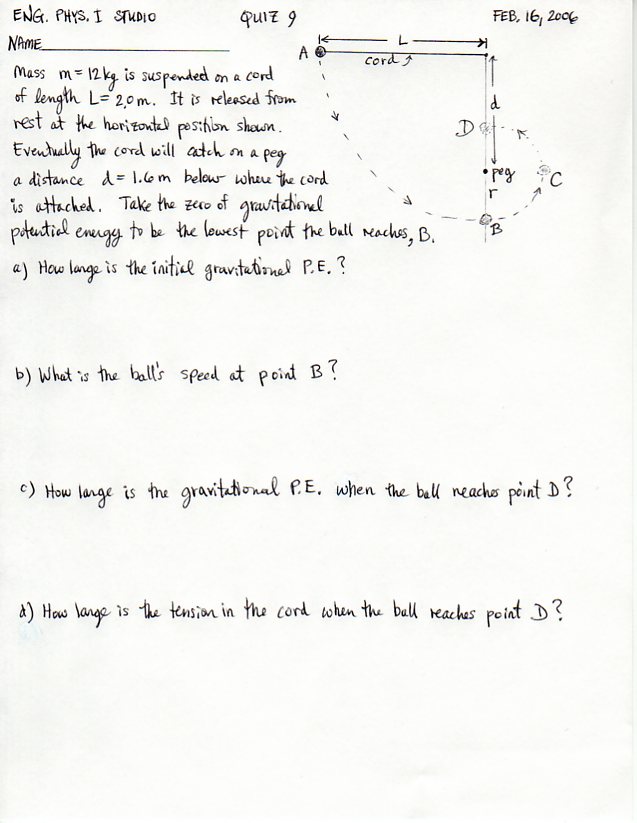 ENG. PHYS. I STUDIO QUIZ 9 FEB. 16, 2006
NAME
Mass m = 12 kg is suspended on a cord
of length L = 2.0 m. It is released from
rest at the horizontal position shown.
Eventually the cord will catch on a peg
a distance d = 1.6 m below where the cord
is attached. Take the zero of gravitational
potential energy to be the lowest point the ball reaches, B.
A
L
cord
d
D
peg
C
r
B
a) How large is the initial gravitational P.E.?
b) What is the ball's speed at point B?
c) How large is the gravitational P.E. when the ball reaches point D?
d) How large is the tension in the cord when the ball reaches point D?